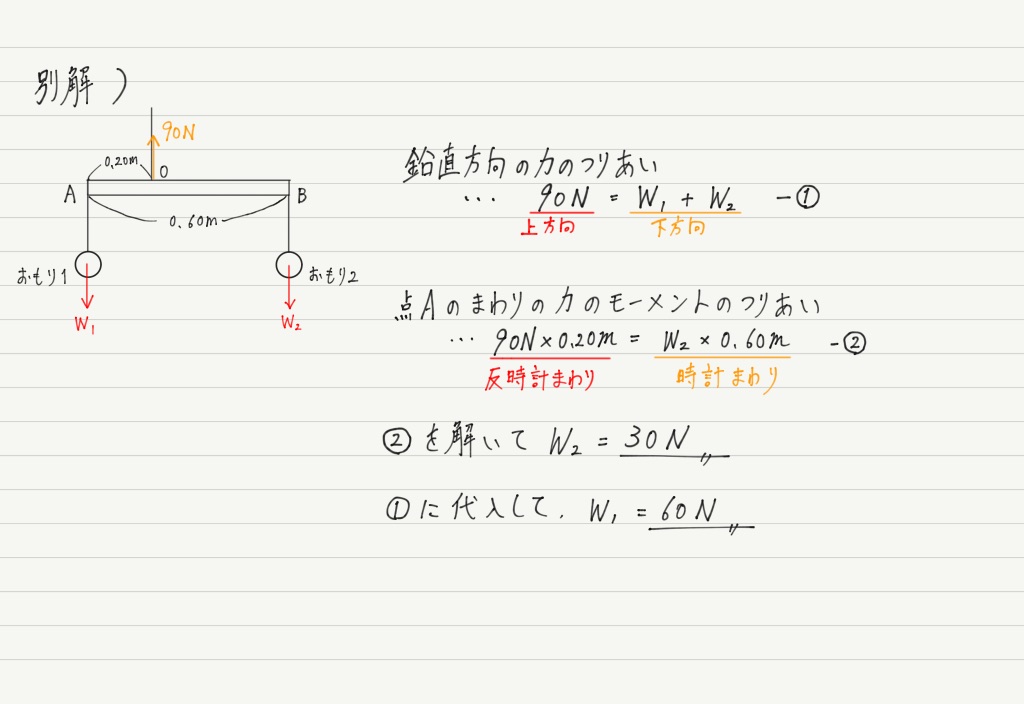 別解)
90N
0.20m
O
A
B
0.60m
おもり1
おもり2
W₁
W₂
鉛直方向の力のつりあい
… 90N = W₁ + W₂ -①
上方向 下方向
点Aのまわりの力のモーメントのつりあい
… 90N×0.20m = W₂ × 0.60m -②
反時計まわり 時計まわり
②を解いて W₂ = 30N〃
①に代入して. W₁ = 60N〃